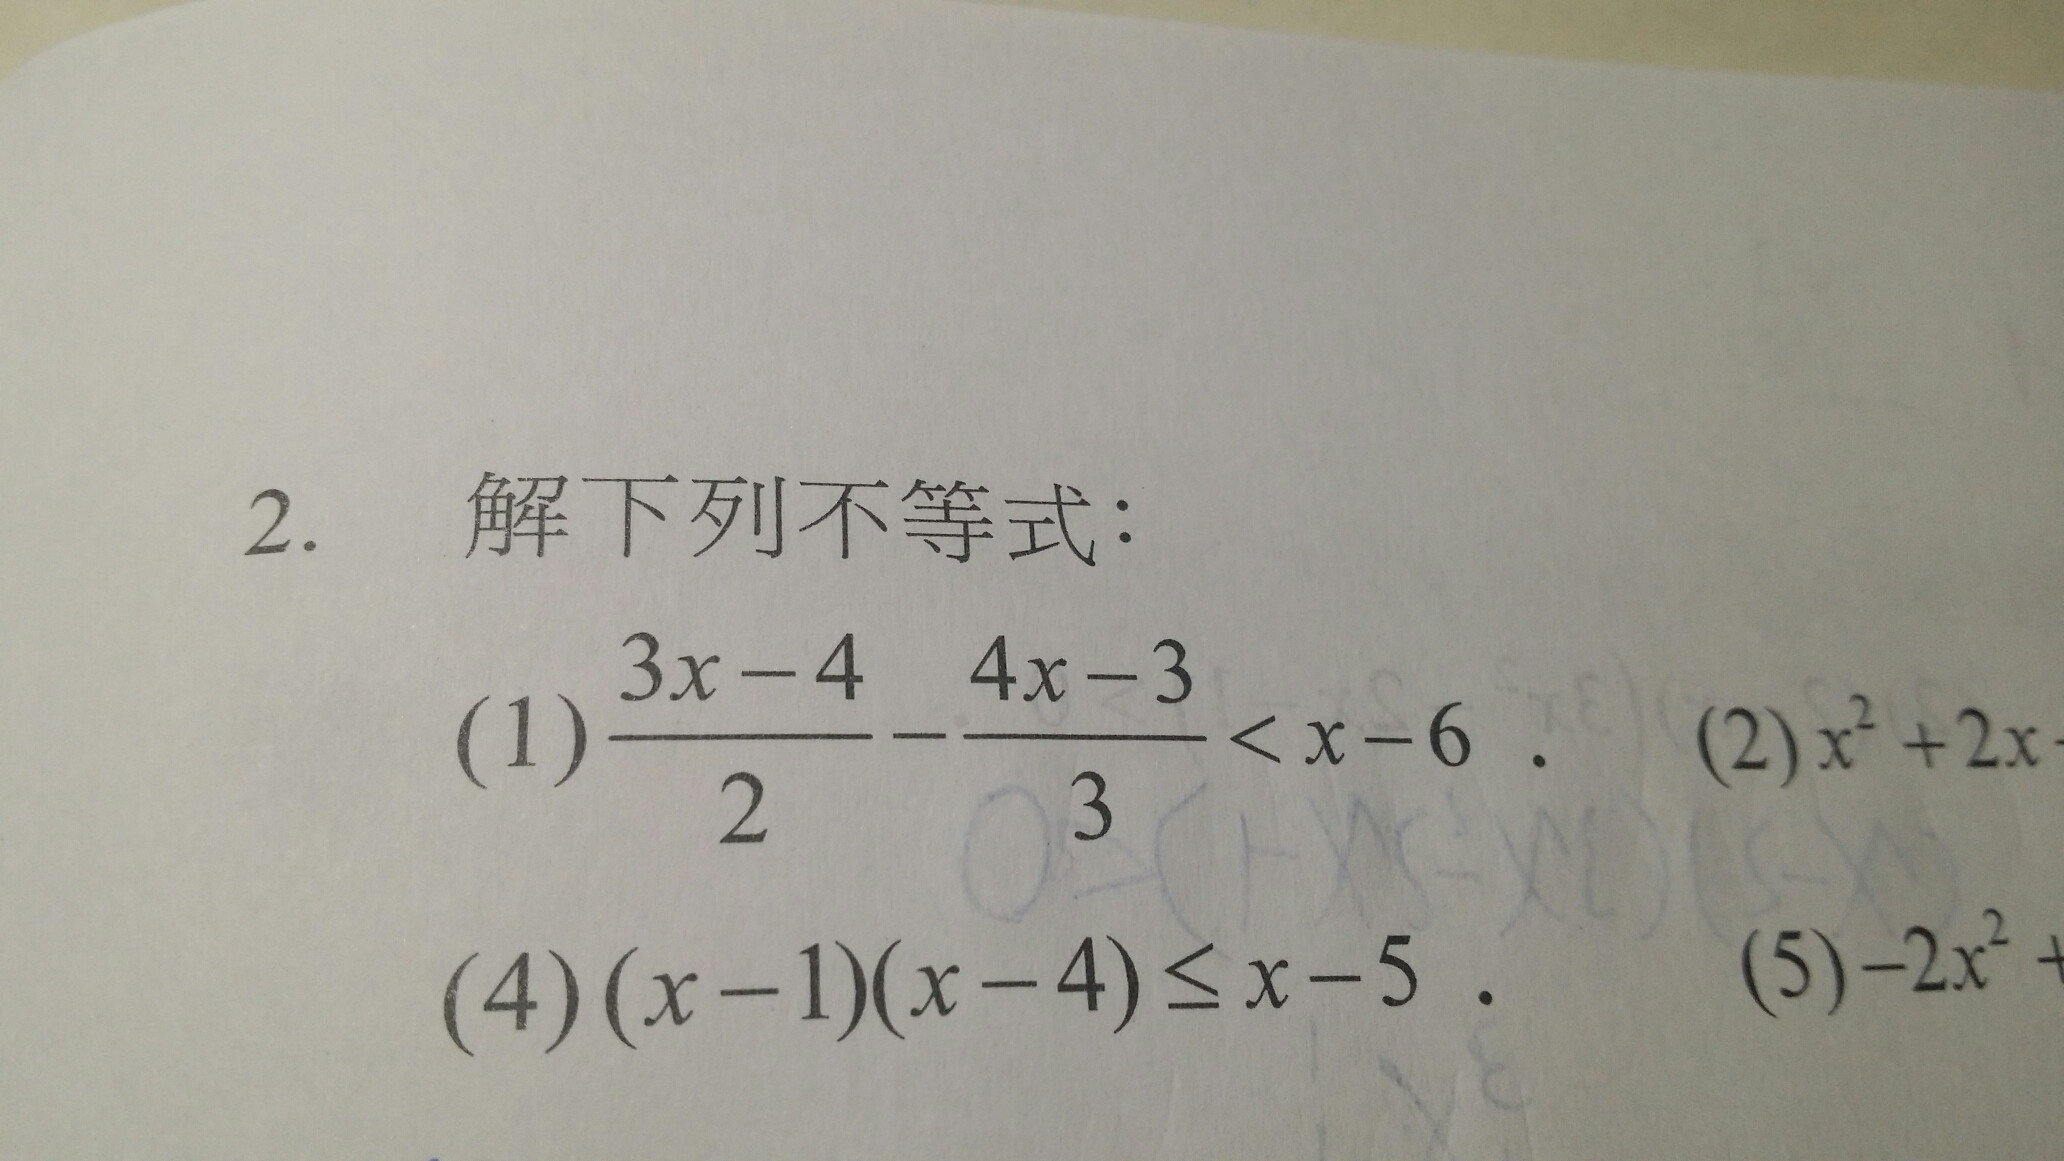 2. 解下列不等式:
(1) \frac{3x-4}{2} - \frac{4x-3}{3} < x-6 . (2) x² + 2x -
(4) (x-1)(x-4) ≤ x-5 . (5) -2x² +